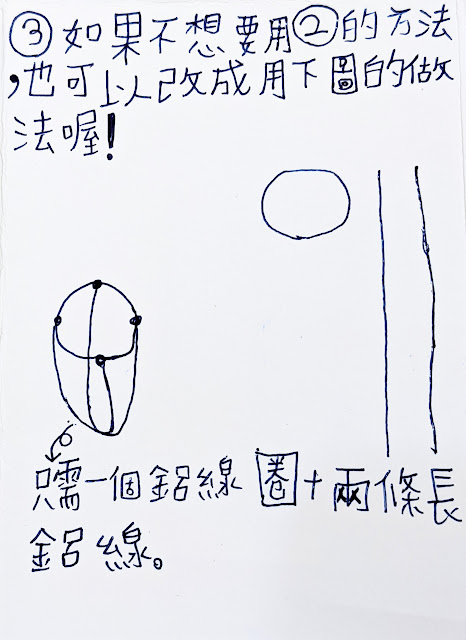 ③如果不想要用②的方法
,也可以改成用下圖的做
法喔!
只需一個鋁線圈+兩條長
鋁線。